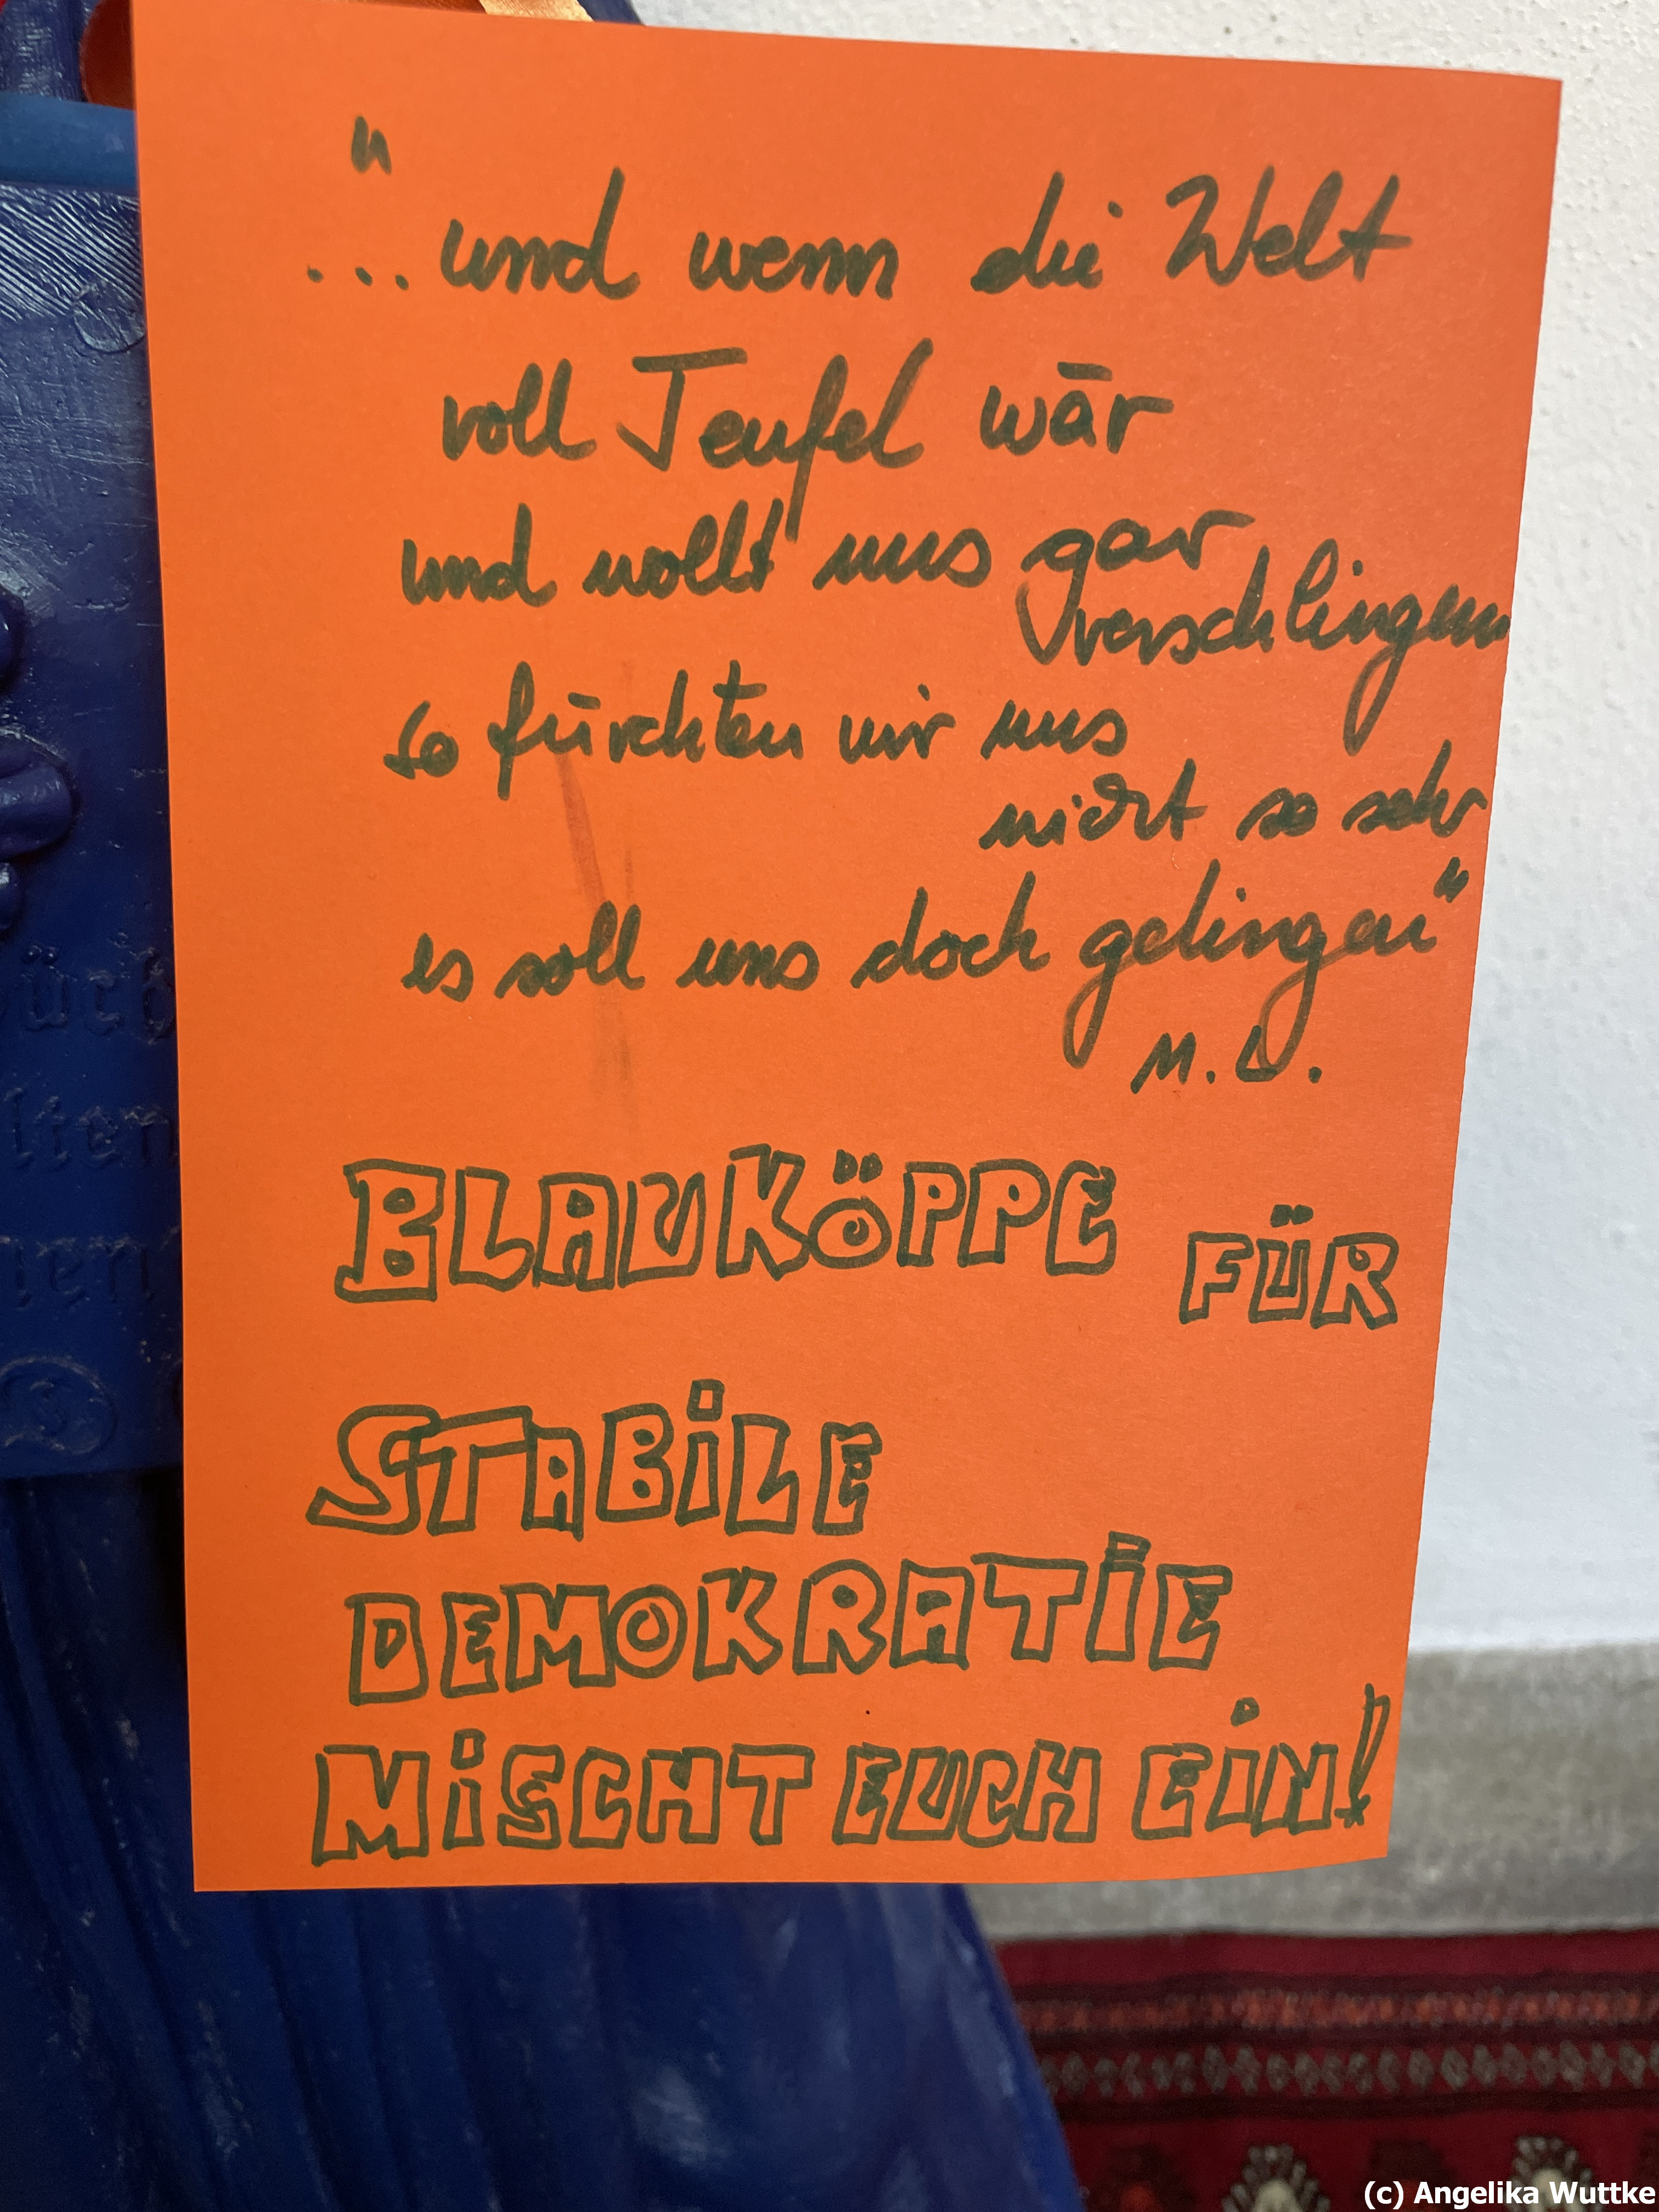 "
... und wenn die Welt
voll Teufel wār
und wollt uns gar
verschlingen
so fürchten wir uns
nicht so sehr
es soll uns doch gelingen"
M.L.
BLAUKÖPPE FÜR
STABiLE
DEMOKRATiE
MiSCHT EUCH EiN!
(c) Angelika Wuttke